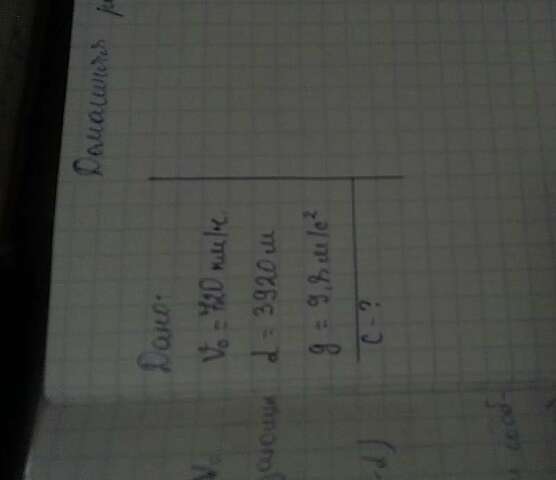 Домашняя
Дано:
V₀ = 720 км/ч.
d = 3920 м
g = 9,8 м/с²
с - ?
V₀